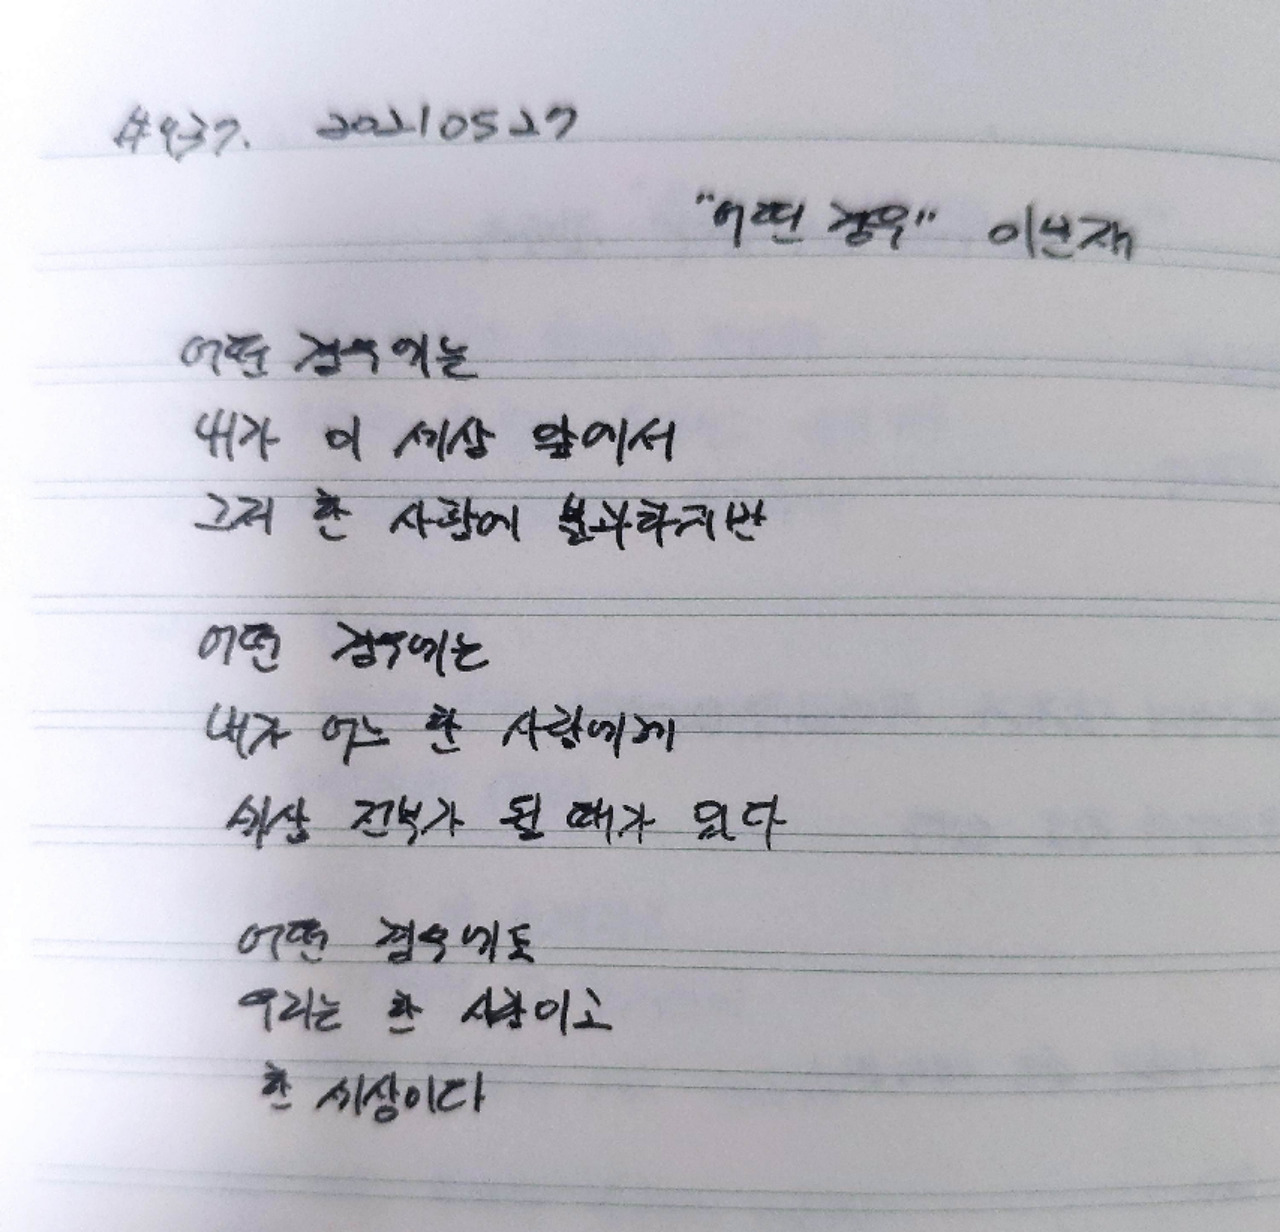 #937. 20210527
"어떤 경우" 이문재
어떤 경우에는
내가 이 세상 앞에서
그저 한 사람에 불과하지만
어떤 경우에는
내가 어느 한 사람에게
세상 전부가 될 때가 있다
어떤 경우에도
우리는 한 사람이고
한 세상이다